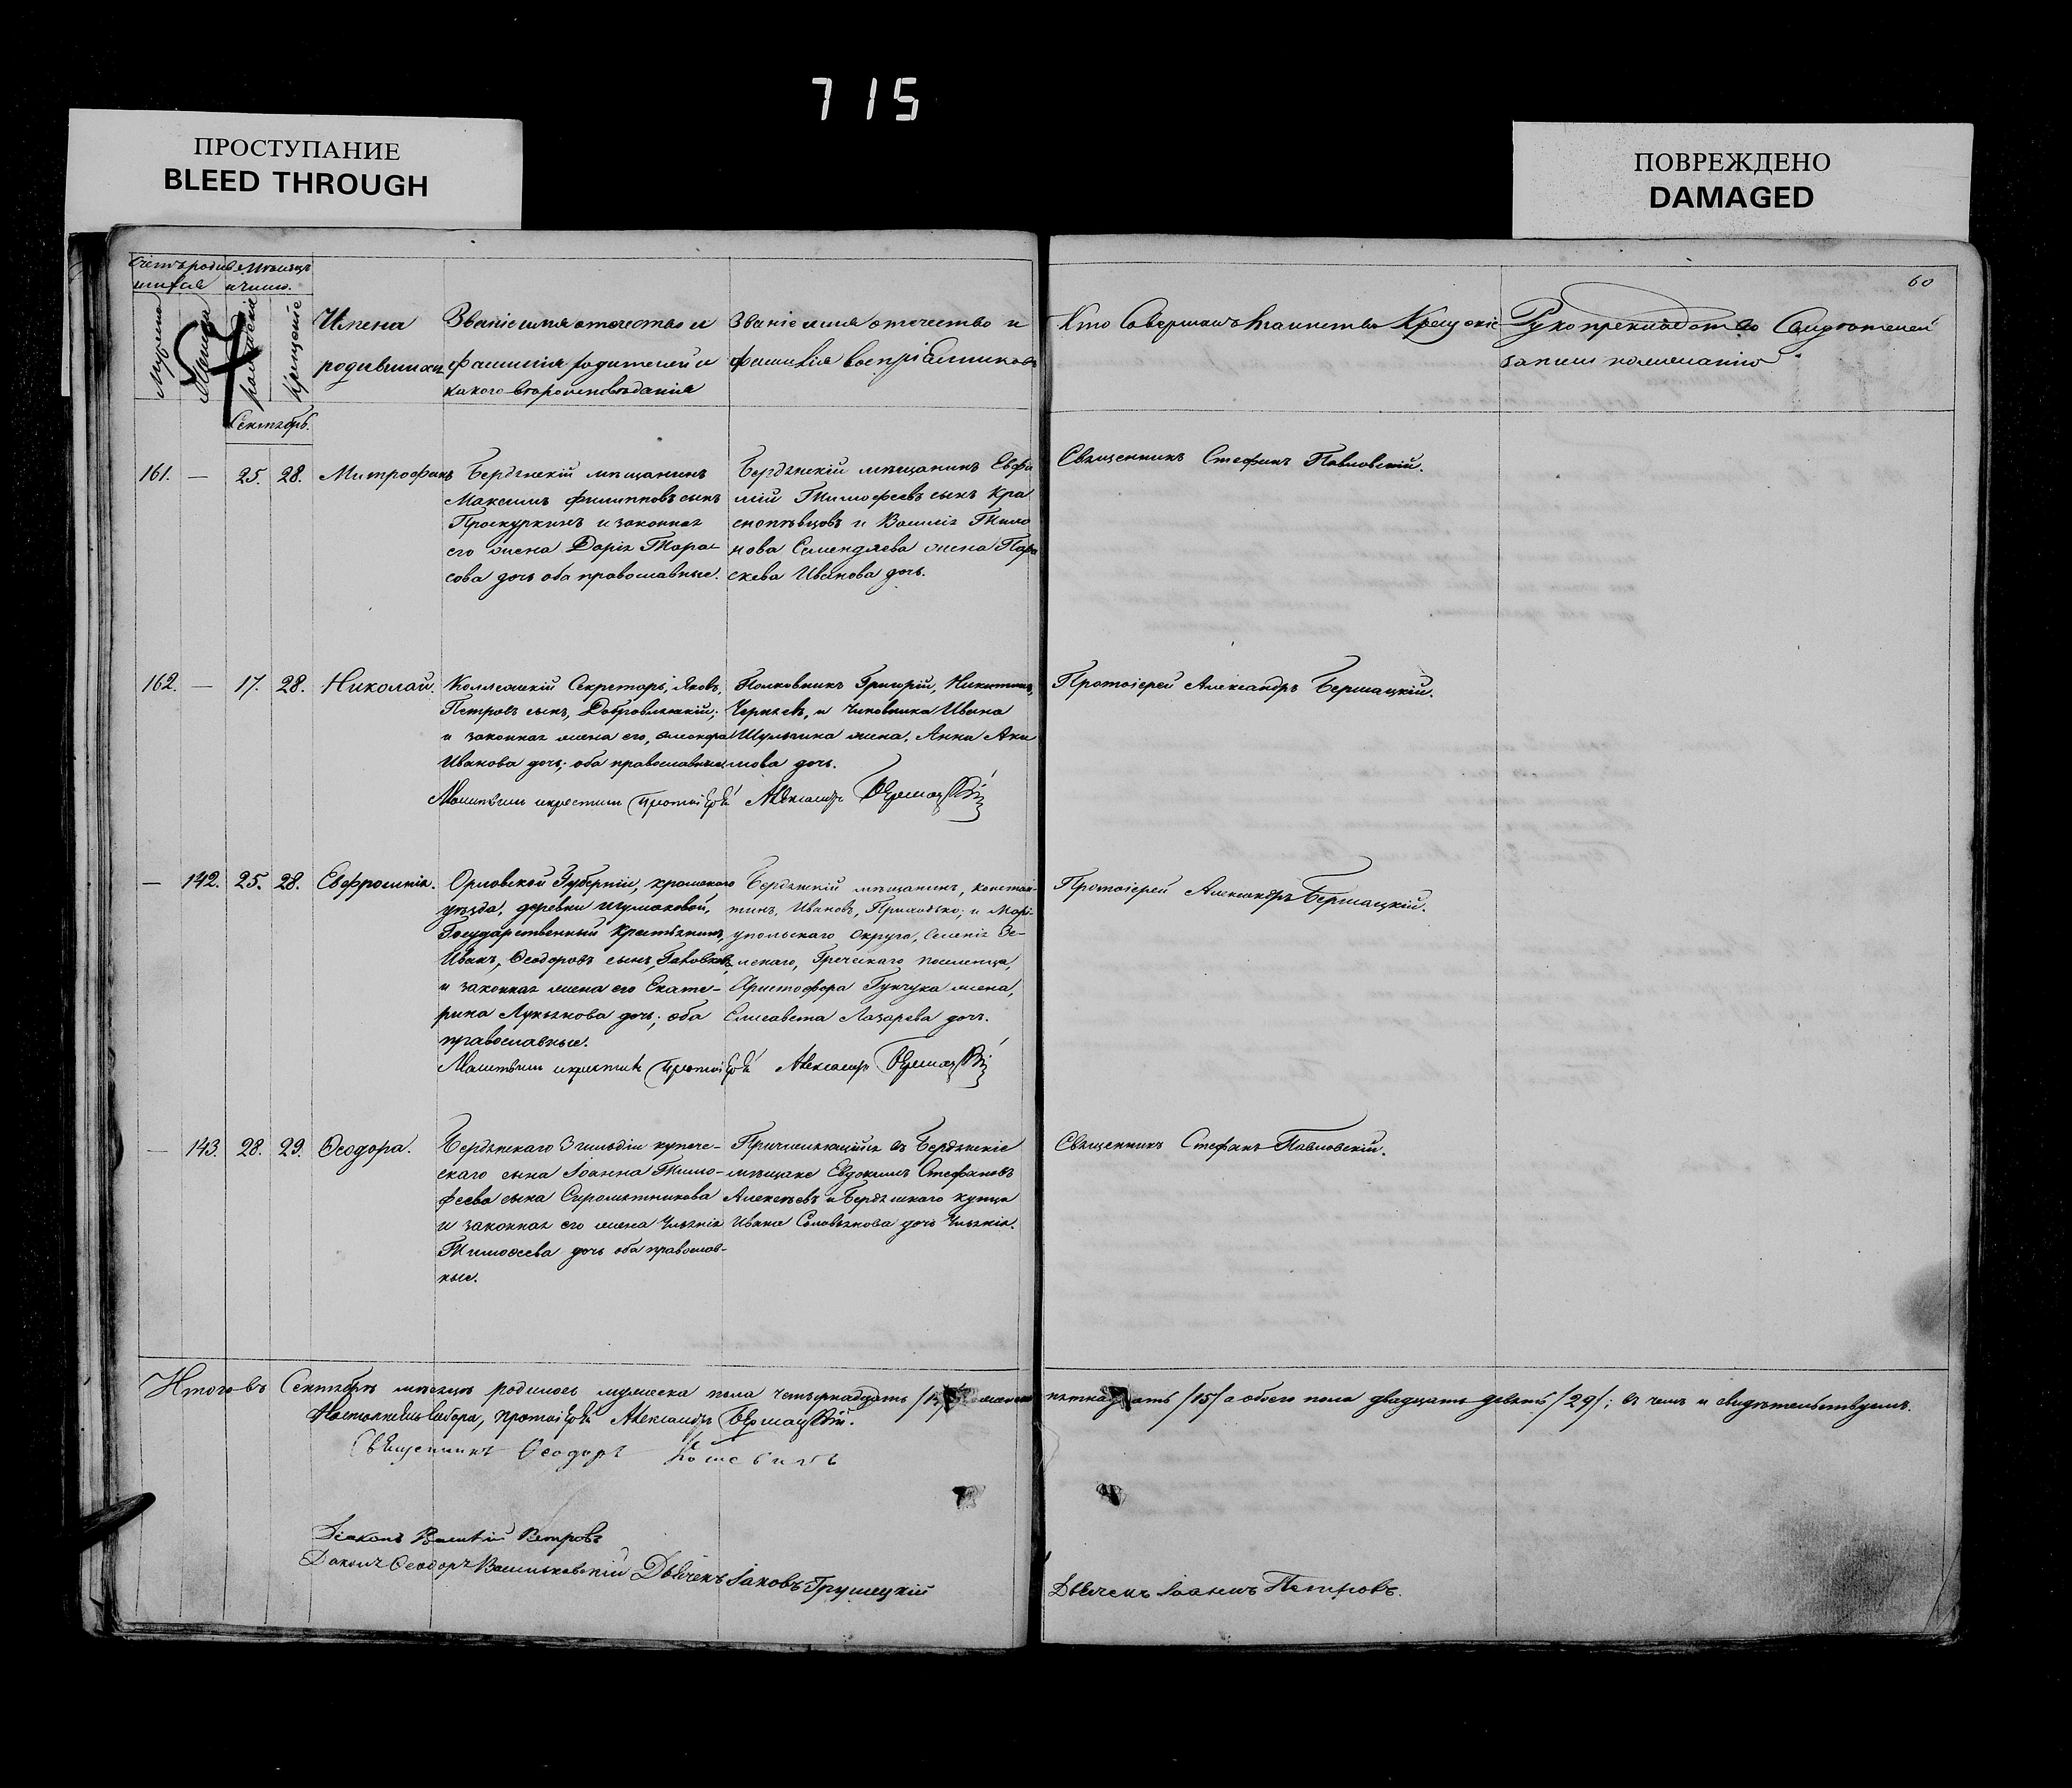 715
ПРОСТУПАНИЕ
BLEED THROUGH
ПОВРЕЖДЕНО
DAMAGED
60
Имена
родившихся
Званіе имя отечество и
фамилія родителей и
какого вѣроисповѣданія
Званіе имя отечество и
фамилія воспріемниковъ
Кто Совершалъ таинство Крещеніе
Рукоприкладство Свидѣтелей
записи по желанію
Мужеска
Женска
рожденія
Крещеніе
Сентябрь.
161. — 25. 28. Митрофанъ
Бердянскій мѣщанинъ
Максимъ Филипповъ сынъ
Проскуркинъ и законная
его жена Дарія Тара-
сова дочь оба православные.
Бердянскій мѣщанинъ Евфи
мій Тимофеевъ сынъ Кра
снопѣвцовъ и Василія Тихо
нова Семендяева жена Пара
скева Иванова дочь.
Священникъ Стефанъ Павловскій.
162. — 17. 28. Николай.
Коллежскій Секретарь, Яковъ,
Петровъ сынъ, Добровляжскій;
и законная жена его,
Иванова дочь; оба православные.
Полковникъ Григорій, Никитинъ,
Черняевъ, и Чиновника Ивана
Шульгина жена, Анна Аки
мова дочь.
Молитвилъ икрестилъ протоіерей Александръ Бершацкій
Протоіерей Александръ Бершацкій.
— 142. 25. 28. Евфросинія.
Орловской Губерніи, кромскаго
уѣзда, деревни Шумаковой,
Государственный Крестьянинъ,
Иванъ, Ѳеодоровъ сынъ,
и законная жена его Екате-
рина Лукьянова дочь; оба
православные.
Бердянскій мѣщанинъ, констан-
тинъ, Ивановъ, Приходько; и Марі-
упольскаго Округа, селенія
Греческаго поселенца,
Христофора Гунчука жена,
Елисавета Лазарева дочь.
Молитвилъ икрестилъ протоіерей Александръ Бершацкій
Протоіерей Александръ Бершацкій.
— 143. 28. 29. Ѳеодора.
Бердянскаго 3 гильдіи купече-
скаго сына Іоанна Тимо-
феева сына Сыромятникова
и законная его жена Уліянія
Тимоѳеева дочь оба православ-
ные.
Причисляющійся въ Бердянскіе
мѣщане Евдокимъ Стефановъ
Алексѣевъ и Бердянскаго купца
Ивана Соловьянова дочь Уліянія.
Священникъ Стефанъ Павловскій.
Итого въ Сентябрѣ мѣсяцѣ родилось мужеска пола четырнадцать женска пятнадцать /15/ а обоего пола двадцать девять /29/; въ чемъ и свидѣтельствуемъ.
Настоятель собора, протоіерей Александръ Бершацкій.
Священникъ Ѳеодоръ
Діаконъ Василій Петровъ
Діаконъ Ѳеодоръ Васильковскій Дьячекъ Іаковъ Грушецкій
Дьячекъ Іоаннъ Петровъ.